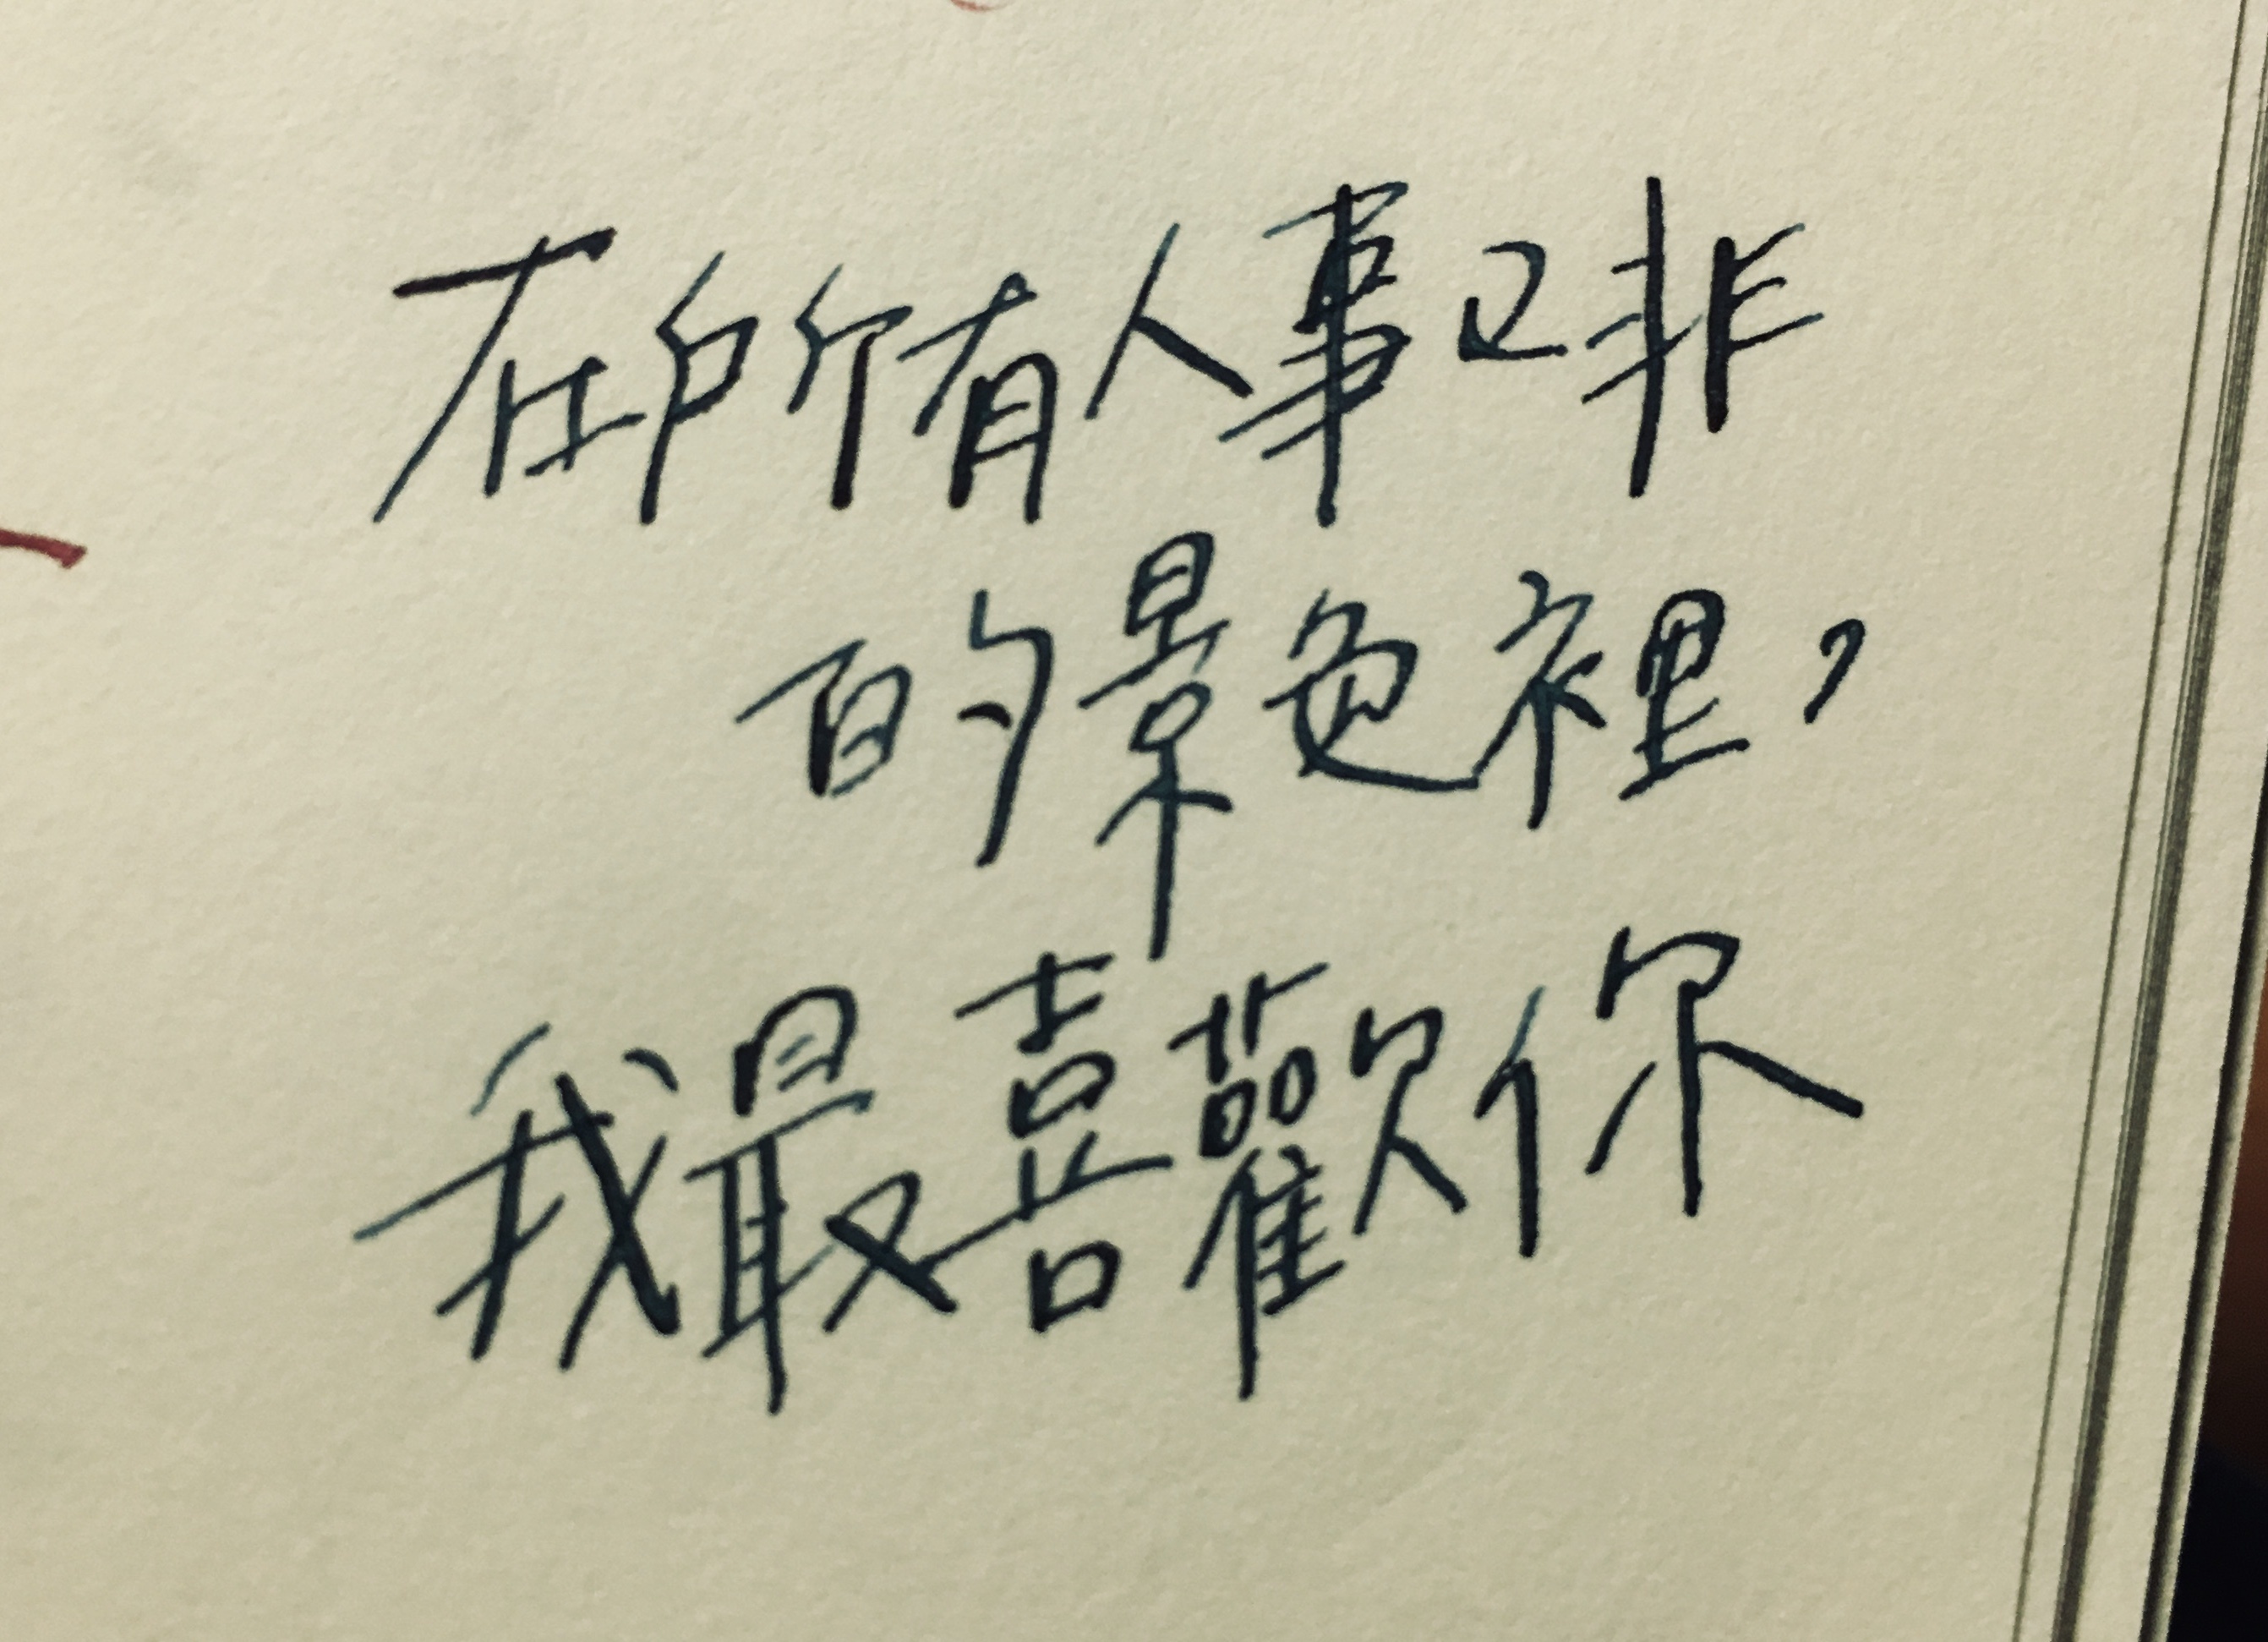 在所有人事已非
的景色裡，
我最喜歡你